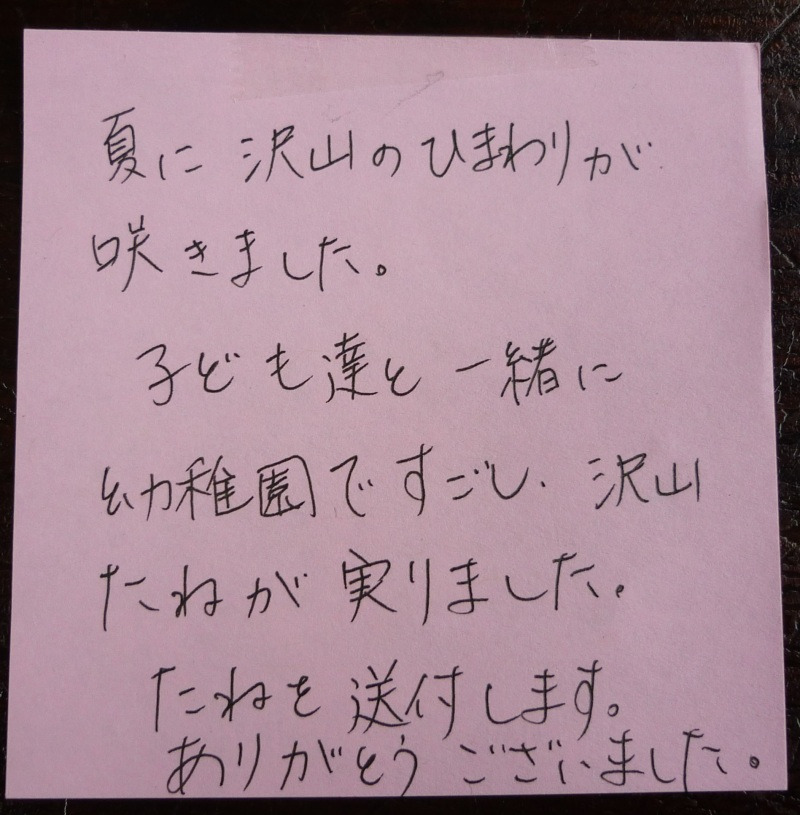 夏に 沢山のひまわりが
咲きました。
子ども達と 一緒に
幼稚園ですごし、沢山
たねが 実りました。
たねを 送付します。
ありがとう ございました。